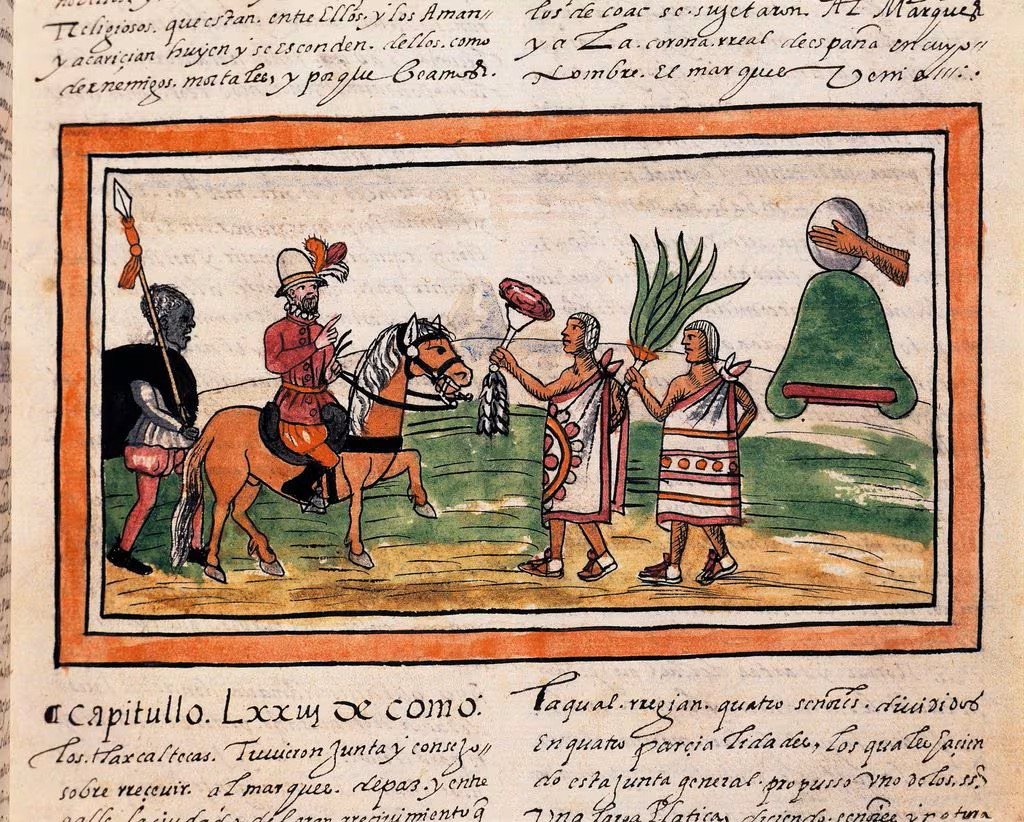 Religiosos. que estan. entre Ellos. y los Aman"
y acarician huyen y se Esconden. dellos. como
de enemigos. mortales, y porque Veamos.
los de coac se. sujetaron. Al Marques
y a La. corona. rreal de españa en cuyo"
Nombre. El marques Venia:
Capitullo. Lxxiij de como:
los. tlaxcaltecas. Tuvieron Junta y consejo"
sobre rrecevir. al marques. de paz. y entre
la ciudad y
la qual. rregian. quatro señores. divididos
En quatro parcialidades, los quales hacien
do esta junta general. propusso Uno de los. ss.
Una larga Platica, diciendo. señores